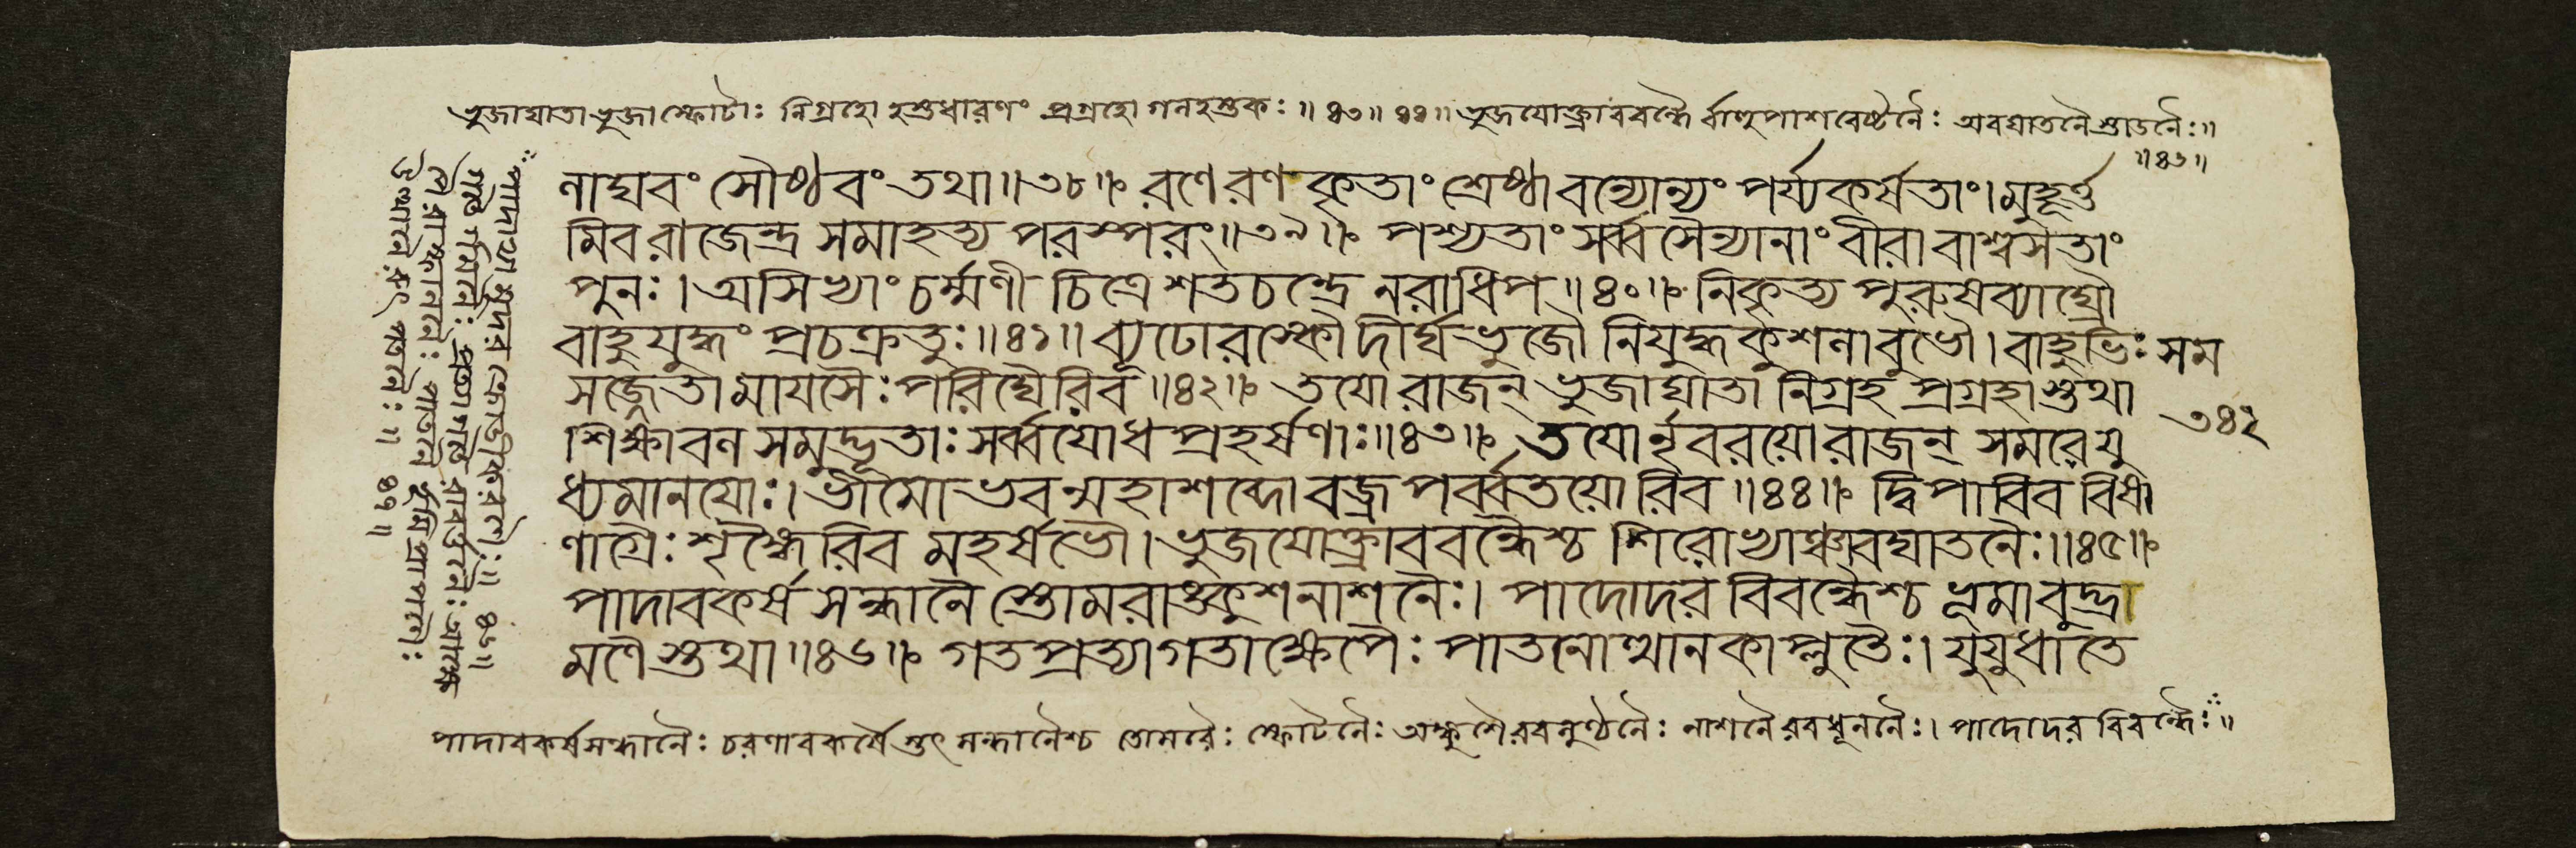 ভুজাঘাতা ভুজাস্ফোটাঃ নিগ্রহো হস্তধারণং প্রগ্রহো গলহস্তকঃ॥৪৩॥৪৪॥ ভুজযোক্ত্রাববন্ধৈ র্বাহুপাশবেষ্টনৈঃ অবঘাতনৈস্তাডনৈঃ॥
॥৪৫॥
লাঘবং সৌষ্ঠবং তথা॥৩৮॥ রণে রণকৃতাং শ্রেষ্ঠাবন্যোন্যং পর্য্যকর্ষতাং। মুহূর্ত্ত
মিব রাজেন্দ্র সমাহত্য পরস্পরং॥৩৯॥ পশ্যতাং সর্ব্বসৈন্যানাং বীরাবাশ্বসতাং
পুনঃ। অসিভ্যাং চর্ম্মণী চিত্রে শতচন্দ্রে নরাধিপ॥৪০॥ নিকৃত্য পুরুষব্যাঘ্রৌ
বাহুযুদ্ধং প্রচক্রতুঃ॥৪১॥ ব্যূঢোরস্কৌ দীর্ঘভুজৌ নিযুদ্ধকুশলাবুভৌ। বাহুভিঃ সম
সজ্জেতামাযসৈঃ পরিঘৈরিব॥৪২॥ তযো রাজন্ ভুজাঘাতা নিগ্রহপ্রগ্রহাস্তথা
শিক্ষাবলসমুদ্ভূতাঃ সর্ব্বযোধপ্রহর্ষণাঃ॥৪৩॥ তযোর্নৃবরযো রাজন্ সমরে যু
ধ্যমানযোঃ। ভীমোভবন্মহাশব্দো বজ্রপর্ব্বতযোরিব॥৪৪॥ দ্বিপাবিব বিষা
ণাগ্রৈঃ শৃঙ্গৈরিব মহর্ষভৌ। ভুজযোক্ত্রাববন্ধৈশ্চ শিরোভ্যাঞ্চাবঘাতনৈঃ॥৪৫॥
পাদাবকর্ষসন্ধানৈ স্তোমরাঙ্কুশলাশনৈঃ। পাদোদরবিবন্ধৈশ্চ ভূমাবুদ্ভ্রা
মণৈস্তথা॥৪৬॥ গতপ্রত্যাগতাক্ষেপৈঃ পাতনোত্থানকাপ্লুতৈঃ। যুযুধাতে
৩৪২
পাদাবকর্ষসন্ধানৈঃ চরণাবকর্ষৈ স্তৎ সন্ধানৈশ্চ তোমরৈঃ স্ফোটনৈঃ অঙ্কুশৈরবলুণ্ঠনৈঃ লাশনৈরবধূননৈঃ। পাদোদরবিবন্ধৈঃ॥